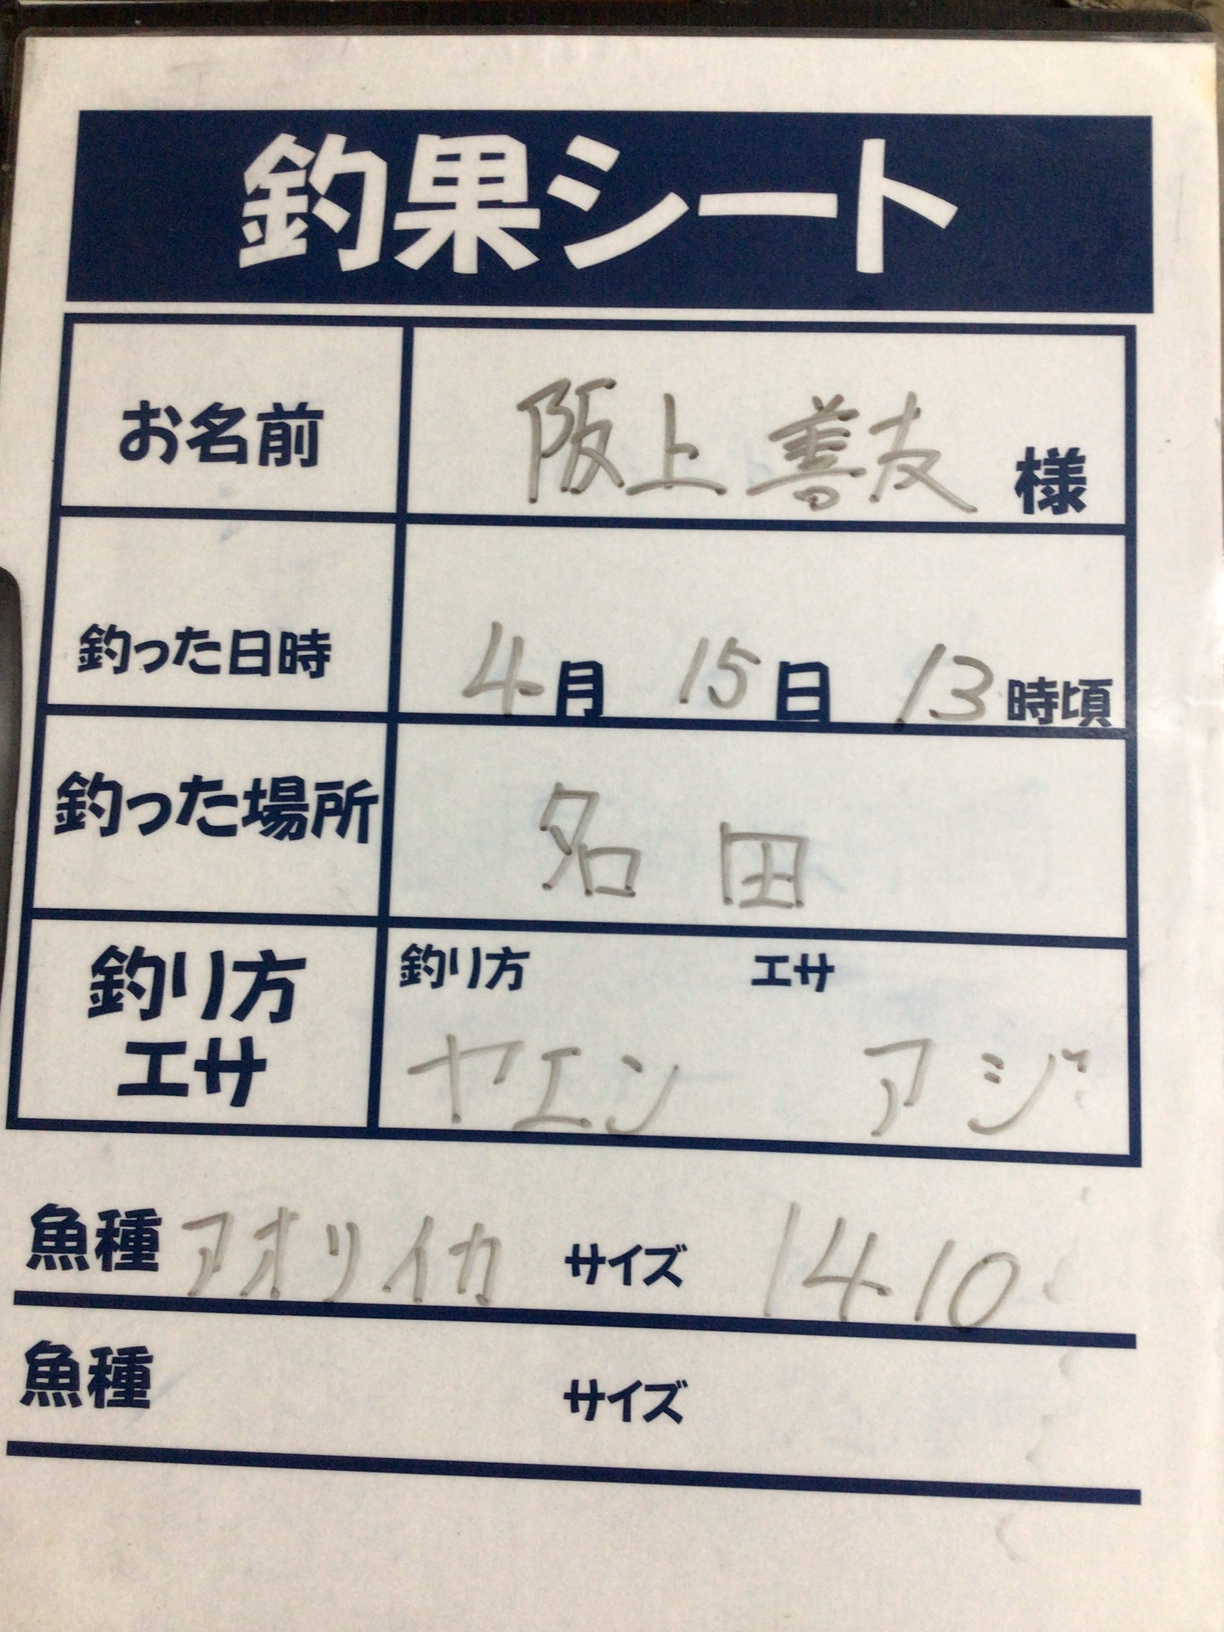 釣果シート
お名前 阪上善友 様
釣った日時 4月 15日 13時頃
釣った場所 名田
釣り方 エサ
釣り方
エサ
ヤエン アジ
魚種 アオリイカ サイズ 1410
魚種 サイズ